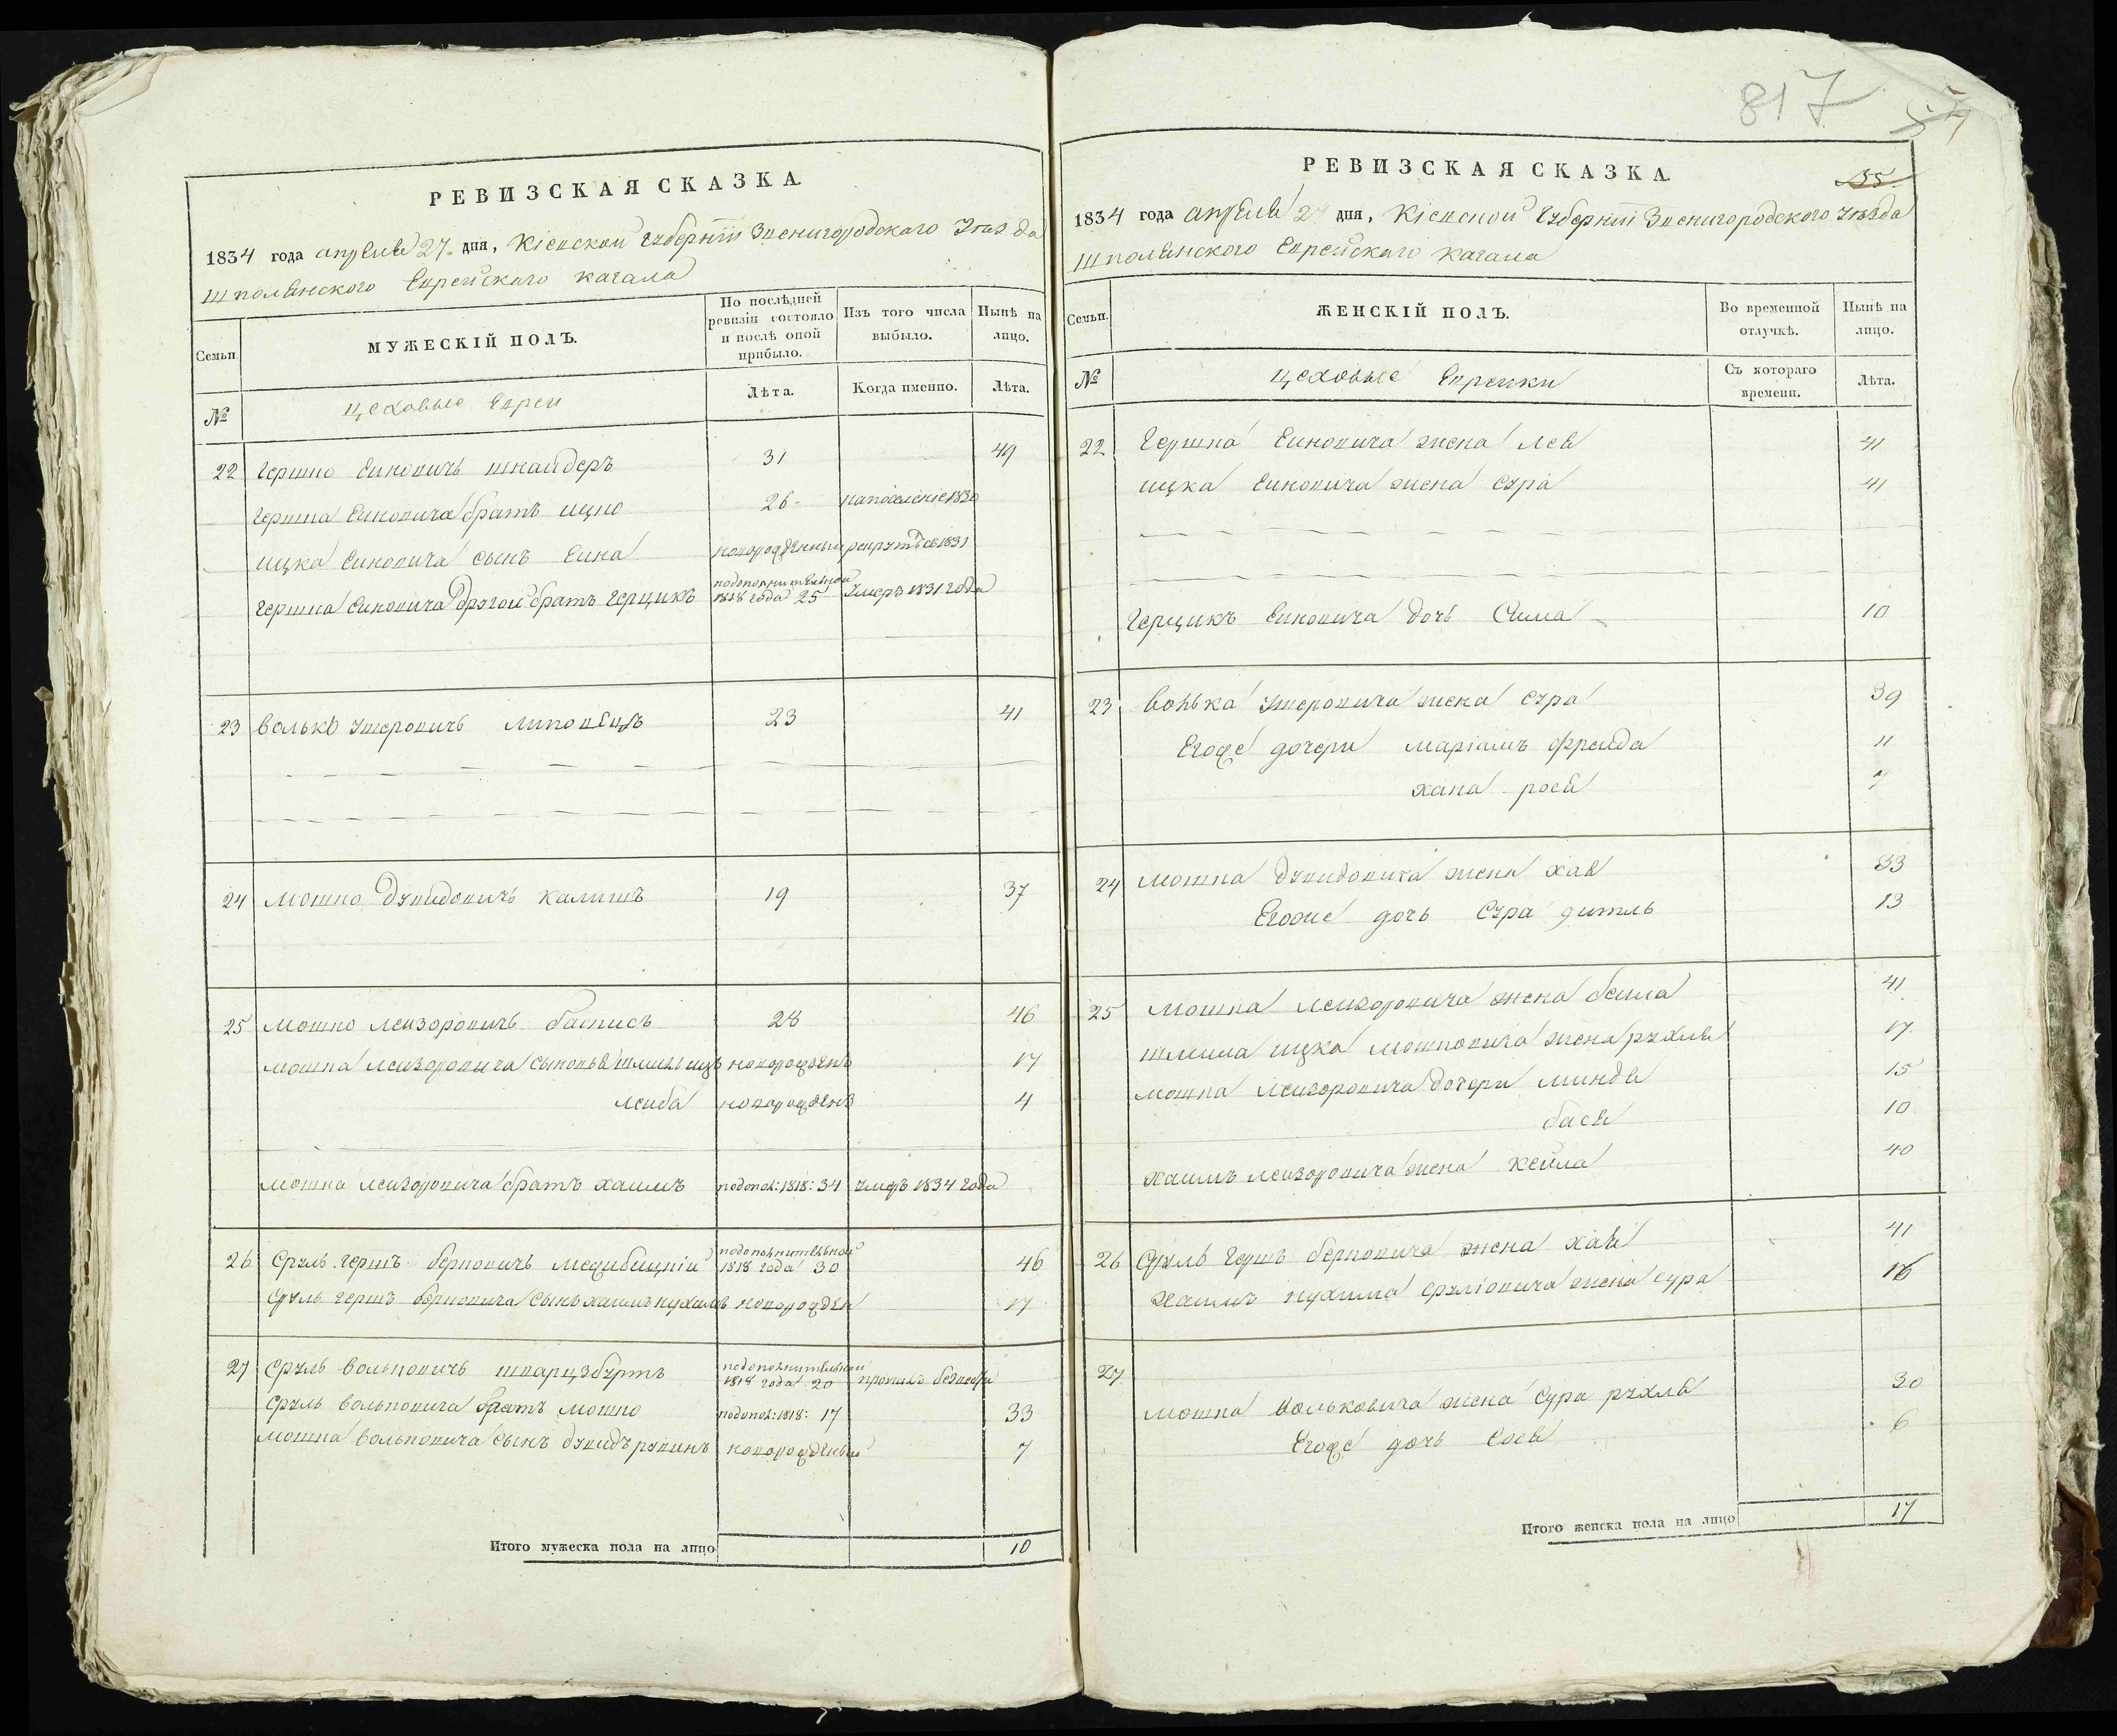 РЕВИЗСКАЯ СКАЗКА.
1834 года апреля 27 дня, Кіевской Губерніи Звенигородского Уезда
Шполянского Еврейского кагала
Семьи.
МУЖЕСКІЙ ПОЛЪ.
По послѣдней ревизіи состояло и послѣ оной прибыло.
Изъ того числа выбыло.
Нынѣ на лицо.
№
цеховые Евреи
Лѣта.
Когда именно.
Лѣта.
22 Гершко Еиновичъ шнайдеръ 31 49
Гершка Еиновича братъ ицко 26 1830
ицка Еиновича сынъ Еина новорожденный 1831
Гершка Еиновича другой братъ Герцикъ подополнительной 1818 года 25 Умеръ 1831 года
23 Волько Ушеровичъ липовецкъ 23 41
24 мошко Дувидовичъ калишъ 19 37
25 мошко лейзоровичъ 28 46
мошка лейзоровича сыновья шлиома ицъ новорожденъ 17
лейба новорожденъ 4
мошка лейзоровича братъ хаимъ подопол: 1818: 34 умеръ 1834 года
26 Сруль Гершъ берковичъ меджибицкій подополнительной 1818 года 30 46
Сруль гершъ берковича сынъ хаимъ нухимъ новорожден 17
27 Сруль Вольковичъ шварцбуртъ подополнительной 1818 года 20 пропалъ безвести
Сруль Вольковича братъ мошко подопол: 1818: 17 33
мошка Вольковича сынъ дувидъ рувинъ новорожденый 7
Итого мужеска пола на лицо 10
817
55
РЕВИЗСКАЯ СКАЗКА.
1834 года апреля 27 дня, Кіевской Губерніи Звенигородского Уезда
Шполянского Еврейского кагала
Семьи.
ЖЕНСКІЙ ПОЛЪ.
Во временной отлучкѣ.
Нынѣ на лицо.
№
цеховые Еврейки
Съ котораго времени.
Лѣта.
22 Гершка Еиновича жена лея 41
ицка Еиновича жена сура 41
Герцикъ Еиновича дочь Сима 10
23 Волька Ушеровича жена сура 39
Егоже дочери маріамъ фрейда 11
хана рося 7
24 мошка Дувидовича жена хая 33
Егоже дочь Сура дитль 13
25 мошка лейзоровича жена бейла 41
шлима ицка мошковича жена рухля 17
мошка лейзоровича дочери миндя 15
бася 10
хаимъ лейзоровича жена кейла 40
26 Сруль Гершъ берковича жена хая 41
хаимъ нухима сруліовича жена сура 16
27
мошка Вольковича жена сура рухля 30
Егоже дочь Сося 6
Итого женска пола на лицо 17